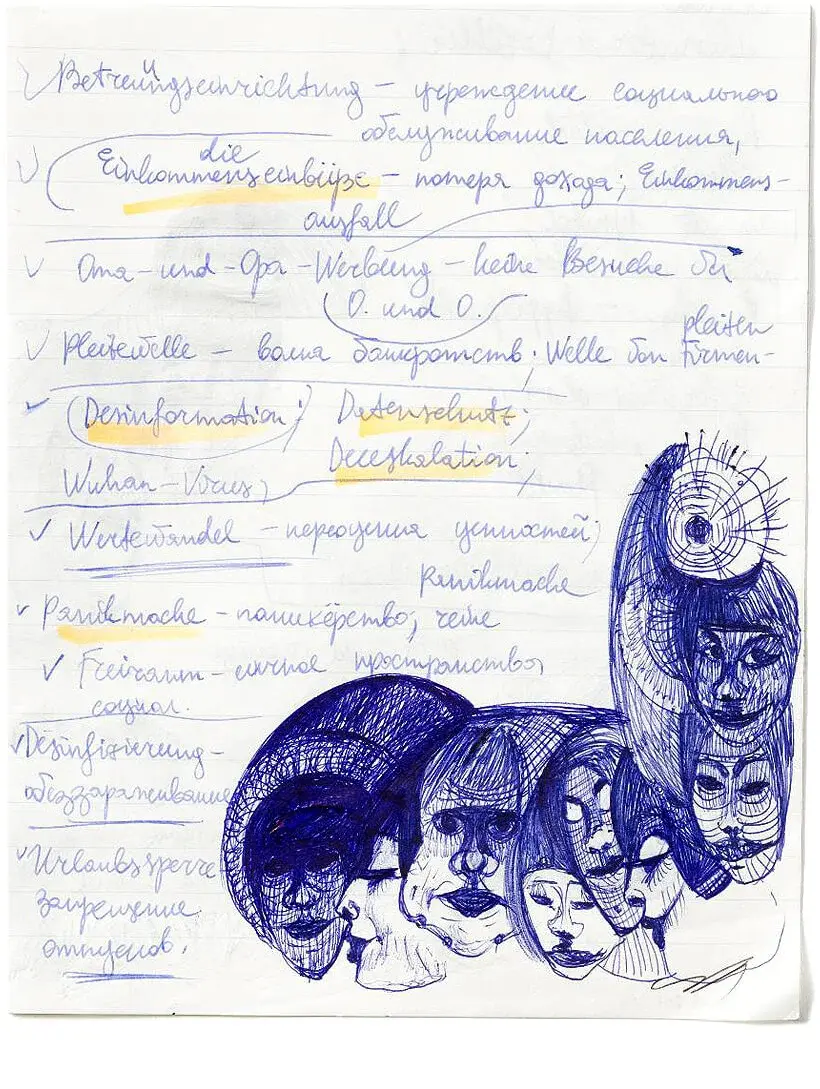 Betreüngseinrichtung – учреждение социального
обслуживание населения,
die
Einkommenseinbüße – потеря дохода; Einkommens-
ausfall
Oma-und-Opa-Werbung – keine Besuche bei
O. und O.
pleiten
Pleitewelle – волна банкротств; Welle von Firmen-
Desinformation; Datenschutz;
Deeskalation;
Wuhan-Virus,
Wertewandel – переоценка ценностей;
Panikmache
Panikmache – паникёрство; reine
Freiraum – личное пространство,
социал.
Desinfizierung –
обеззараживание
Urlaubssperre
запрещение
отпусков.